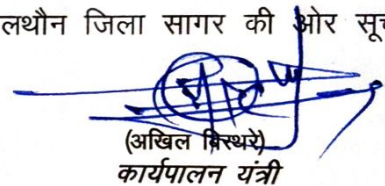 लथौन जिला सागर की ओर सूच
(अखिल बिरथरे)
कार्यपालन यंत्री